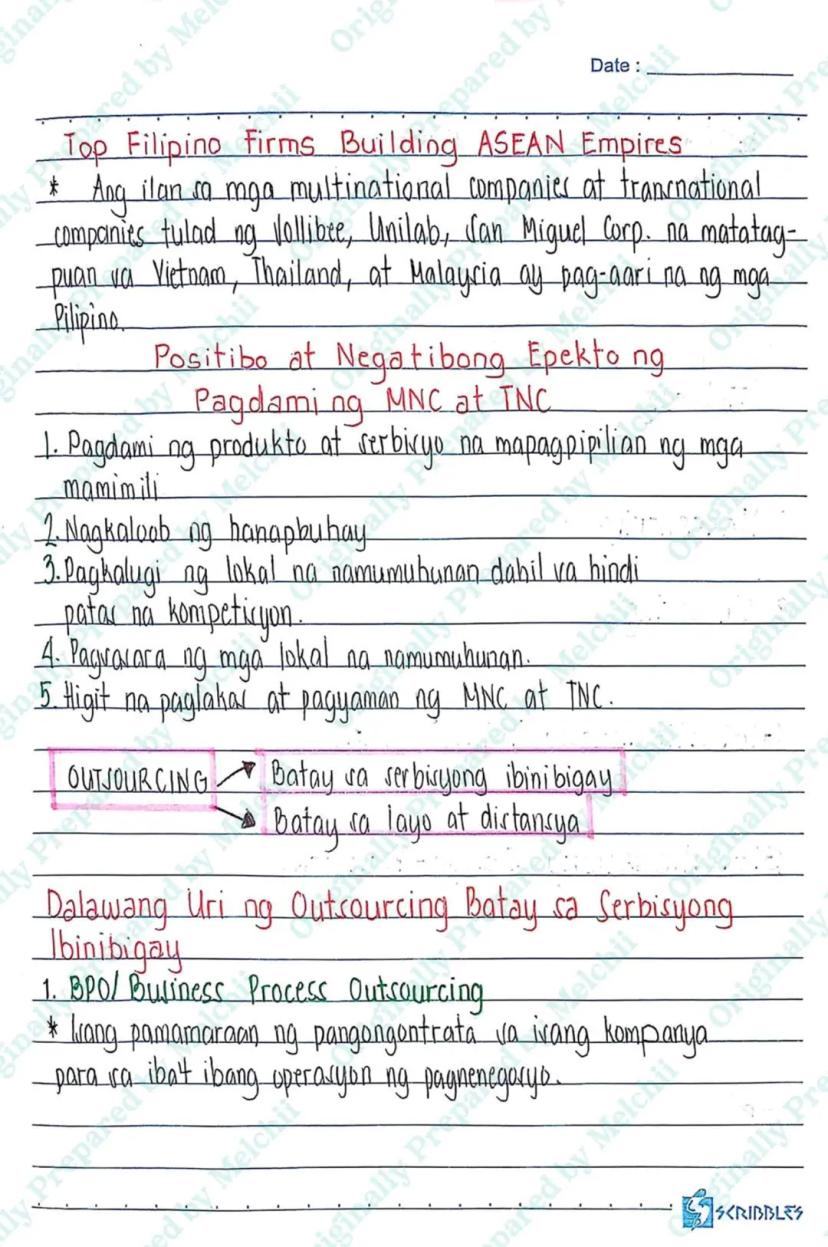 Date :
Top Filipino Firms Building ASEAN Empires
* Ang ilan sa mga multinational companies at transnational
companies tulad ng Jollibee, Unilab, San Miguel Corp. na matatag-
puan sa Vietnam, Thailand, at Malaysia ay pag-aari na ng mga
Pilipino.
Positibo at Negatibong Epekto ng
Pagdami ng MNC at TNC
1. Pagdami ng produkto at serbisyo na mapagpipilian ng mga
mamimili
2. Nagkaloob ng hanapbuhay
3. Pagkalugi ng lokal na namumuhunan dahil sa hindi
patas na kompetisyon.
4. Pagsasara ng mga lokal na namumuhunan.
5. Higit na paglakas at pagyaman ng MNC at TNC.
OUTSOURCING
Batay sa serbisyong ibinibigay
Batay sa layo at distansya
Dalawang Uri ng Outsourcing Batay sa Serbisyong
Ibinibigay
1. BPO/ Business Process Outsourcing
* Isang pamamaraan ng pangongontrata sa isang kompanya
para sa iba't ibang operasyon ng pagnenegosyo.
SCRIBBLES
Originally Prepared by Melchii